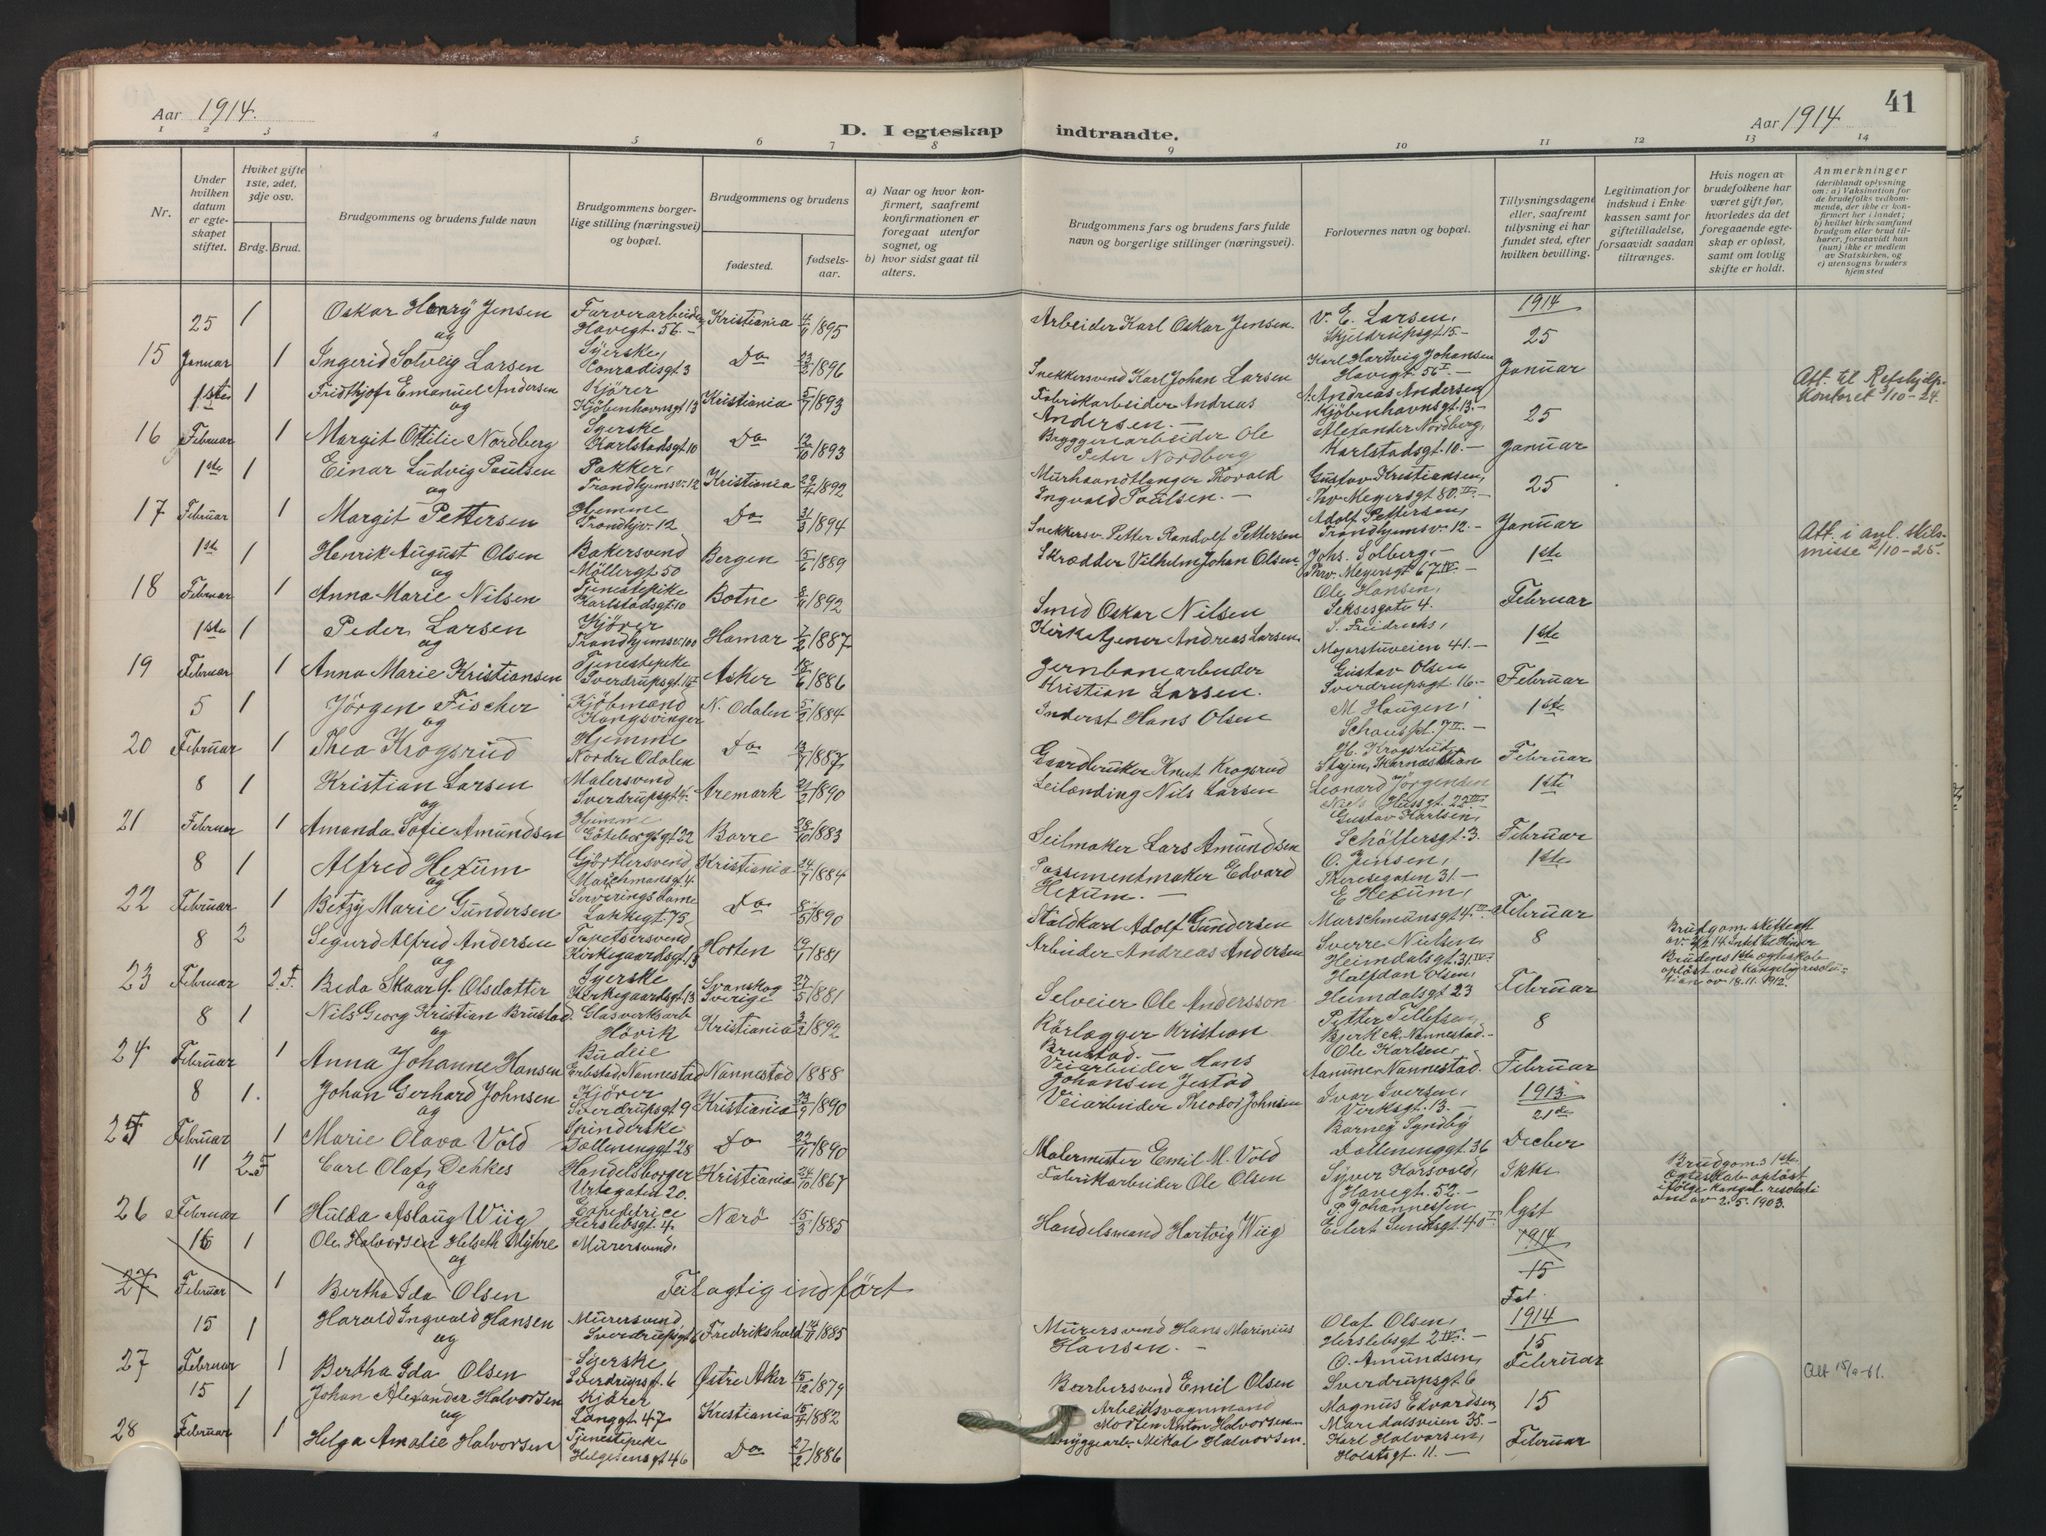 Aar 1914.
D. I egteskap indtraadte.
Aar 1914
41
1 2 3 4 5 6 7 8 9 10 11 12 13 14
Nr.
Under hvilken datum er egteskapet stiftet.
Hvilket gifte 1ste, 2det, 3dje osv.
Brdg. Brud.
Brudgommens og brudens fulde navn
Brudgommens borgerlige stilling (næringsvei) og bopæl.
Brudgommens og brudens
fødested.
fødselsaar.
a) Naar og hvor konfirmert, saafremt konfirmationen er foregaat utenfor sognet, og
b) hvor sidst gaat til alters.
Brudgommens fars og brudens fars fulde navn og borgerlige stillinger (næringsvei).
Forlovernes navn og bopæl.
Tillysningsdagene eller, saafremt tillysning ei har fundet sted, efter hvilken bevilling.
Legitimation for indskud i Enkekassen samt for giftetilladelse, forsaavidt saadan tiltrænges.
Hvis nogen av brudefolkene har været gift før, hvorledes da det foregaaende egteskap er opløst, samt om lovlig skifte er holdt.
Anmerkninger
(deriblandt oplysning om: a) Vaksination for de brudefolks vedkommende, der ikke er konfirmert her i landet; b) hvilket kirkesamfund brudgom eller brud tilhører, forsaavidt han (hun) ikke er medlem av Statskirken, og c) utensogns bruders hjemsted
25 1 Oskar Henry Jensen Farverarbeider Havegt. 56 Kristiania 4/11 1895 Arbeider Karl Oskar Jensen. V. E. Larsen, Skjeldrupsgt. 15 1914 25
og
15 Januar 1 Ingerid Solveig Larsen Syerske, Conradisgt 3 Do 23/2 1896 Snekkersvend Karl Johan Larsen Karl Hartvig Johansen Havegt 56 I. Januar
1ste 1 Fridthjof Emanuel Andersen Kjører Kjøbenhavnsgt 13 Kristiania 5/7 1893 Fabrikarbeider Andreas Andersen. Andreas Andersen Kjøbenhavnsgt. 13. 25 Att. til Refshjdp. Kontoret 3/10-24.
og
16 Februar 1 Margit Ottilie Nordberg Syerske Karlstadsgt 10 Do 12/10 1893 Bryggeriarbeider Ole Peter Nordberg Alexander Nordberg, Karlstadsgt. 10. Januar
1ste 1 Einar Ludvig Paulsen Pakker, Trondhjemsv. 12 Kristiania 29/4 1892 Murhaandtlanger Thorvald Ingvald Paulsen. Gustav Kristiansen, Thv. Meyersgt 80 II. 25
og
17 Februar 1 Margit Pettersen Hjemme Trondhjv. 12 Do 31/3 1894 Snekkersv. Petter Randolf Pettersen Adolf Pettersen, Trondhjemsv. 12. Januar Att. i anl. skilsmisse 2/10-25.
1ste 1 Henrik August Olsen Bakersvend Möllergt 50 Bergen 15/6 1889 Skrædder Vilhelm Johan Olsen. Johs. Solberg. Thv. Meyersgt 67 IV. 1ste
og
18 Februar 1 Anna Marie Nilsen Tjenestepike Karlstadsgt. 10 Botne 8/11 1892 Smed Oskar Nilsen Ole Hansen, Seksesgate 4. Februar
1ste 1 Peder Larsen Kjører Trondhjemsv. 100 Hamar 7/2 1887 Kirketjener Andreas Larsen S. Friedrichs, Majorstuveien 41. 1ste
og
19 Februar 1 Anna Marie Kristiansen Tjenestepike Sverdrupsgt. 16 Asker 18/6 1886 Jernbanearbeider Kristian Larsen. Gustav Olsen Sverdrupsgt. 16. Februar
5 1 Jörgen Fischer Kjöbmand Kongsvinger N. Odalen 5/2 1884 Inderst Hans Olsen M Haugen, Schouspl. 7 II. 1ste
og
20 Februar 1 Thea Krogsrud Hjemme Nordre Odalen Do 13/7 1887 Gaardbruker Knut Krogsrud H. Krogsrud Februar
8 1 Kristian Larsen Malersvend Sverdrupsgt 4. Aremark 21/2 1890 Leilænding Nils Larsen Leonard Jörgensen Niels Husgt. 22 III 1ste
og
21 Februar 1 Amanda Sofie Amundsen Hjemme Göteborgsgt 22 Borre 28/10 1883 Seilmaker Lars Amundsen Gustav Karlsen, Schöffersgt. 3. Februar
8 1 Alfred Hexum Gjörtlersvend Marschmansgt 4. Kristiania 24/7 1884 Possementmaker Edvard Hexum. O. Jensen, Theresegaten 31. 1ste
og
22 Februar 1 Betzy Marie Gundersen Serveringsdame Lakkegt. 75 Do 8/5 1890 Staldkarl Adolf Gundersen E Hexum, Marschmansgt 4 III Februar
8 2 Sigurd Alfred Andersen Tapetsersvend Kirkegaardsgt. 13 Horten 19/1 1881 Arbeider Andreas Andersen Sverre Nielsen, Heimdalsgt. 31 IV. 8 Brudens 1ste ægteskab opløst ved kongelig resolution av 18.11.1912.
og
23 Februar 2.F. Beda Skaar f. Olsdatter Syerske Kirkegaardsgt. 13 Svanskog Sverige 27/5 1881 Selveier Ole Andersson Halfdan Olsen, Heimdalsgt 23 Februar
8 1 Nils Georg Kristian Brustad. Glasverksarb Hövik Kristiania 3/2 1892 Rörlægger Kristian Brustad. Petter Tellefsen, Bjerk ek. Nannestad. 8
og
24 Februar 1 Anna Johanne Hansen Budeie Nannestad Nannestad 1888 Veiarbeider Hans Johansen Jestad Ole Karlsen, Nannestad. Februar
8 1. Johan Gerhard Johnsen Kjører Sverdrupsgt 9 Kristiania 23/9 1890 Veiarbeider Theodor Johnsen Ivar Iversen, Verksgt. 13. 1913. 21de
og
25 Februar 1 Marie Olava Vold Spinderske Dælenenggt 28 Do 22/11 1890 Malermester Emil M. Vold Barney Syndby Dælenenggt 36 Decber
11 2.F Carl Olaf Dehkes Handelsborger Urtegaten 20. Kristiania 24/10 1867 Fabrikarbeider Ole Olsen Syver Horsvold, Havegt. 52. Ikke Brudgoms 1ste ægteskab opløst ifølge kongel. resolution av 2.5.1903.
og
26 Februar 1 Hulda Aslaug Wiig Expeditrice Herslebsgt. 4. Nærö 15/3 1885 Handelsmand Hartvig Wiig P. Johannesen Eilert Sundtsgt 40 I. lyst
16 1 Ole Halvorsen Helseth Myhre Murersvend. 1914
og 15
27 Februar 1 Bertha Ida Olsen Feilagtig indført Feb.
15 1 Harald Ingvald Hansen Murersvend Sverdrupsgt 6 Fredrikshald 14/11 1885 Murersvend Hans Marinius Hansen. Olaf Olsen, Herslebsgt 2 IV. 1914 15
og
27 Februar 1 Bertha Ida Olsen Syerske Sverdrupsgt. 6 Østre Aker 15/12 1879 Barbersvend Emil Olsen O. Amundsen, Sverdrupsgt. 6 Februar Att 15/9-61.
15 1 Johan Alexander Halvorsen Kjører Langgt. 47 Kristiania 15/11 1882 Arbeidsvognmand Morten Anton Halvorsen Magnus Edvardsen Maridalsveien 35. 15
og
28 Februar 1 Helga Amalie Halvorsen Tjenestepike Helgesensgt 46 Do 27/2 1886 Bryggearb. Mikal Halvorsen. Karl Halvorsen, Holstsgt. 11. Februar